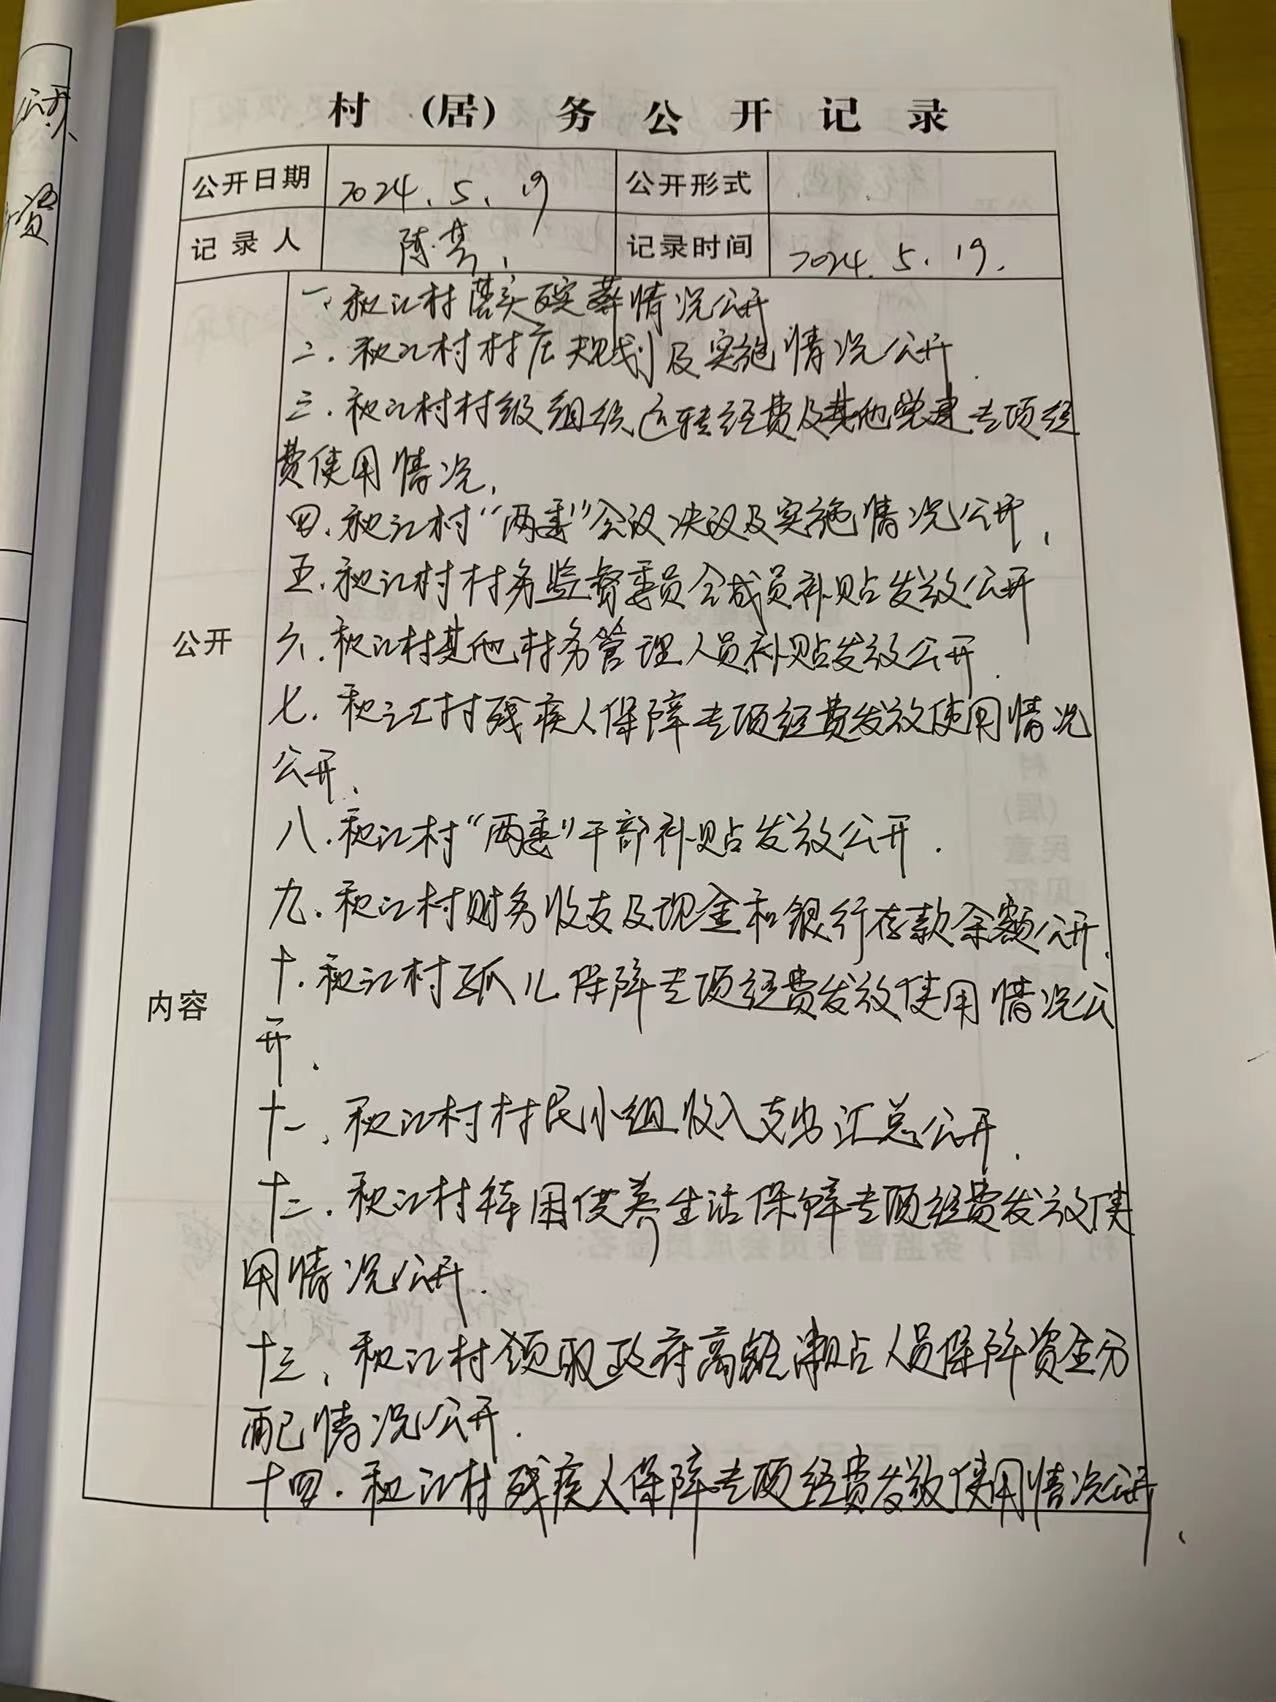 公开
资
村（居）务公开记录
公开日期 2024.5.19 公开形式
记录人 陈芳 记录时间 2024.5.19.
一、秋江村落实殡葬情况公开
二、秋江村村庄规划及实施情况公开.
三、秋江村村级组织运转经费及其他党建专项经
费使用情况、
四、秋江村“两委”会议决议及实施情况公开、
五、秋江村村务监督委员会成员补贴发放公开
六、秋江村其他村务管理人员补贴发放公开.
七、秋江村残疾人保障专项经费发放使用情况
公开、
八、秋江村“两委”干部补贴发放公开.
九、秋江村财务收支及现金和银行存款余额公开.
十、秋江村孤儿保障专项经费发放使用情况公
开、
十一、秋江村村民小组收入支出汇总公开.
十二、秋江村特困供养生活保障专项经费发放使
用情况公开.
十三、秋江村领取政府高龄津贴人员保障资金分
配情况公开.
十四、秋江村残疾人保障专项经费发放使用情况公开、
公开
内容